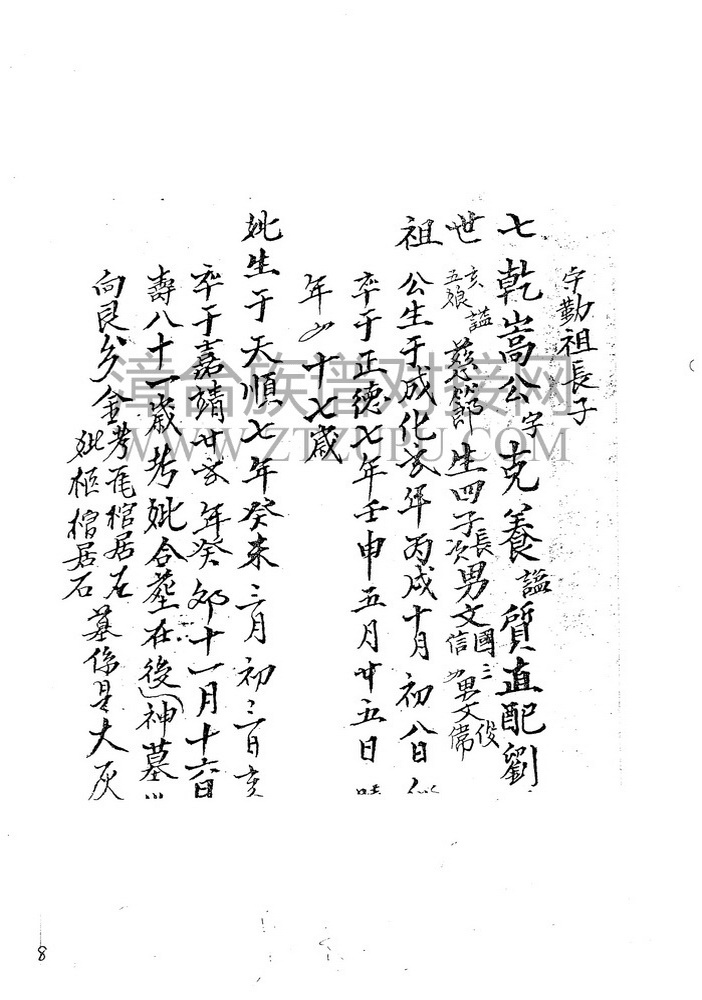 守勤祖長子
七乾嵩公字克養諡質直配劉
世五娘諡慈節生四子長男文國三俊
次信四男文常
祖公生于成化二年丙戌十月初八日
卒于正德七年壬申五月廿五日時
年四十七歲
妣生于天順七年癸未三月初三日亥
卒于嘉靖廿二年癸卯十一月十六日
壽八十一歲考妣合塟在後神墓
向艮分金考尾棺居左墓係是大灰
妣柩棺居右
漳台族谱对接网
WWW.ZTZUPU.COM
8